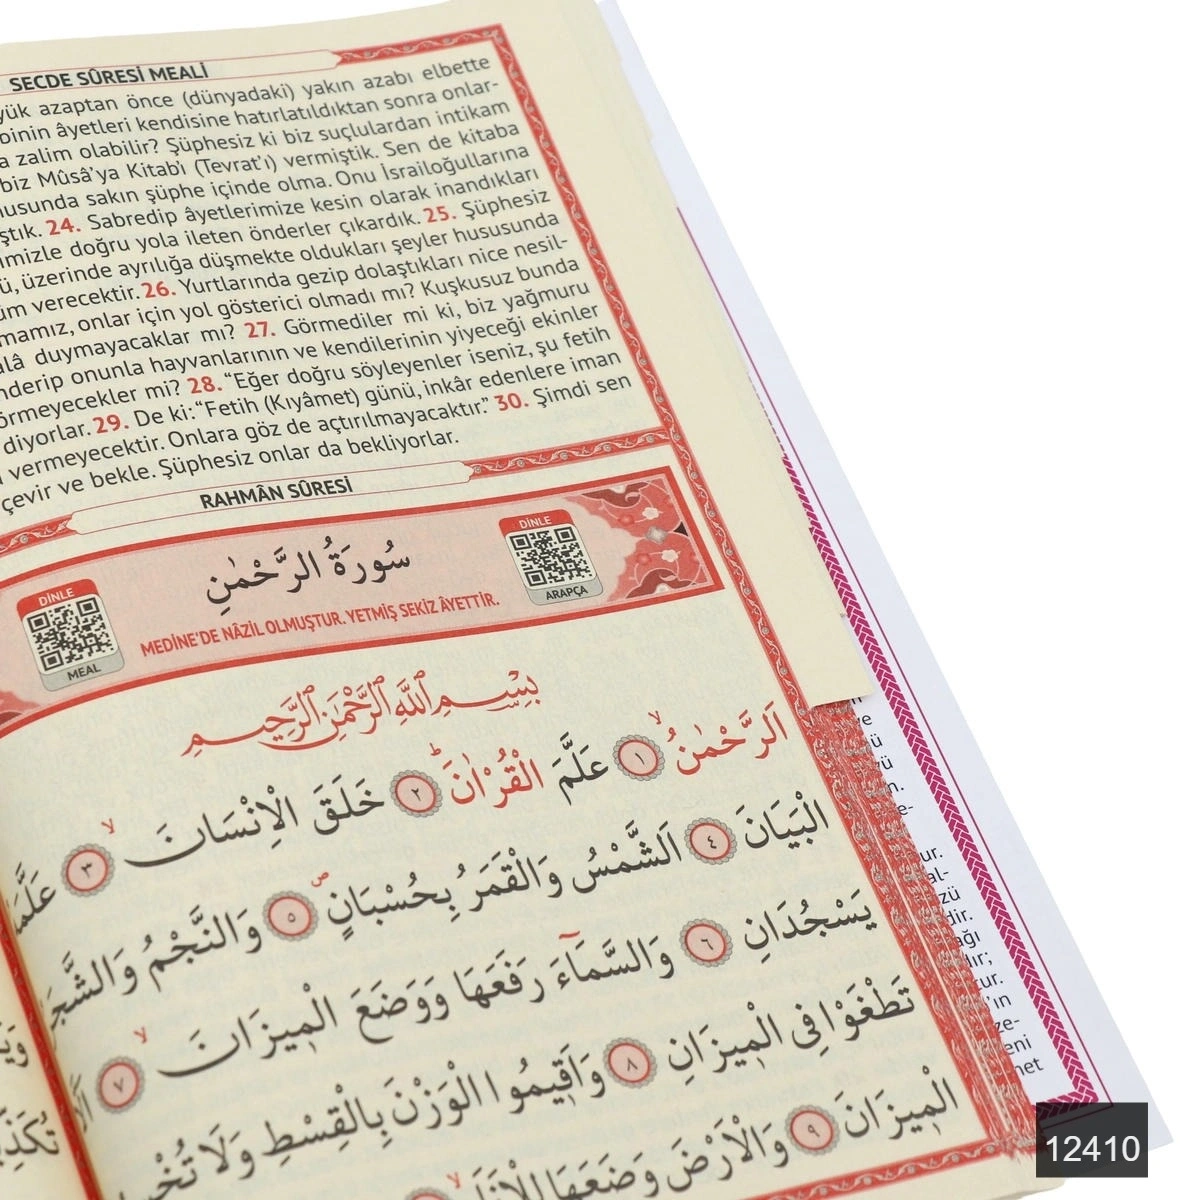 SECDE SÛRESİ MEALİ
yük azaptan önce (dünyadaki) yakın azabı elbette
binin âyetleri kendisine hatırlatıldıktan sonra onlar-
a zalim olabilir? Şüphesiz ki biz suçlulardan intikam
biz Mûsâ'ya Kitab'ı (Tevrat'ı) vermiştik. Sen de kitaba
usunda sakın şüphe içinde olma. Onu İsrailoğullarına
ştık. 24. Sabredip âyetlerimize kesin olarak inandıkları
imizle doğru yola ileten önderler çıkardık. 25. Şüphesiz
ü, üzerinde ayrılığa düşmekte oldukları şeyler hususunda
üm verecektir. 26. Yurtlarında gezip dolaştıkları nice nesil-
mamız, onlar için yol gösterici olmadı mı? Kuşkusuz bunda
âlâ duymayacaklar mı? 27. Görmediler mi ki, biz yağmuru
nderip onunla hayvanlarının ve kendilerinin yiyeceği ekinler
örmeyecekler mi? 28. "Eğer doğru söyleyenler iseniz, şu fetih
diyorlar. 29. De ki: "Fetih (Kıyâmet) günü, inkâr edenlere iman
vermeyecektir. Onlara göz de açtırılmayacaktır." 30. Şimdi sen
çevir ve bekle. Şüphesiz onlar da bekliyorlar.
RAHMÂN SÛRESİ
DİNLE
MEAL
سُورَةُ الرَّحْمٰنِ
MEDİNE'DE NÂZİL OLMUŞTUR. YETMİŞ SEKİZ ÂYETTİR.
DİNLE
ARAPÇA
بِسْمِ اللّٰهِ الرَّحْمٰنِ الرَّحِيمِ
اَلرَّحْمٰنُ ۙ ١ عَلَّمَ الْقُرْاٰنَ ۜ ٢ خَلَقَ الْاِنْسَانَ ۙ ٣ عَلَّمَهُ
الْبَيَانَ ٤ اَلشَّمْسُ وَالْقَمَرُ بِحُسْبَانٍ ۖ ٥ وَالنَّجْمُ وَالشَّجَرُ
يَسْجُدَانِ ٦ وَالسَّمَٓاءَ رَفَعَهَا وَوَضَعَ الْمٖيزَانَ ۙ ٧ اَلَّا
تَطْغَوْا فِى الْمٖيزَانِ ٨ وَاَقٖيمُوا الْوَزْنَ بِالْقِسْطِ وَلَا تُخْسِرُوا
الْمٖيزَانَ ٩ وَالْاَرْضَ وَضَعَهَا لِلْاَنَامِ ۙ
12410